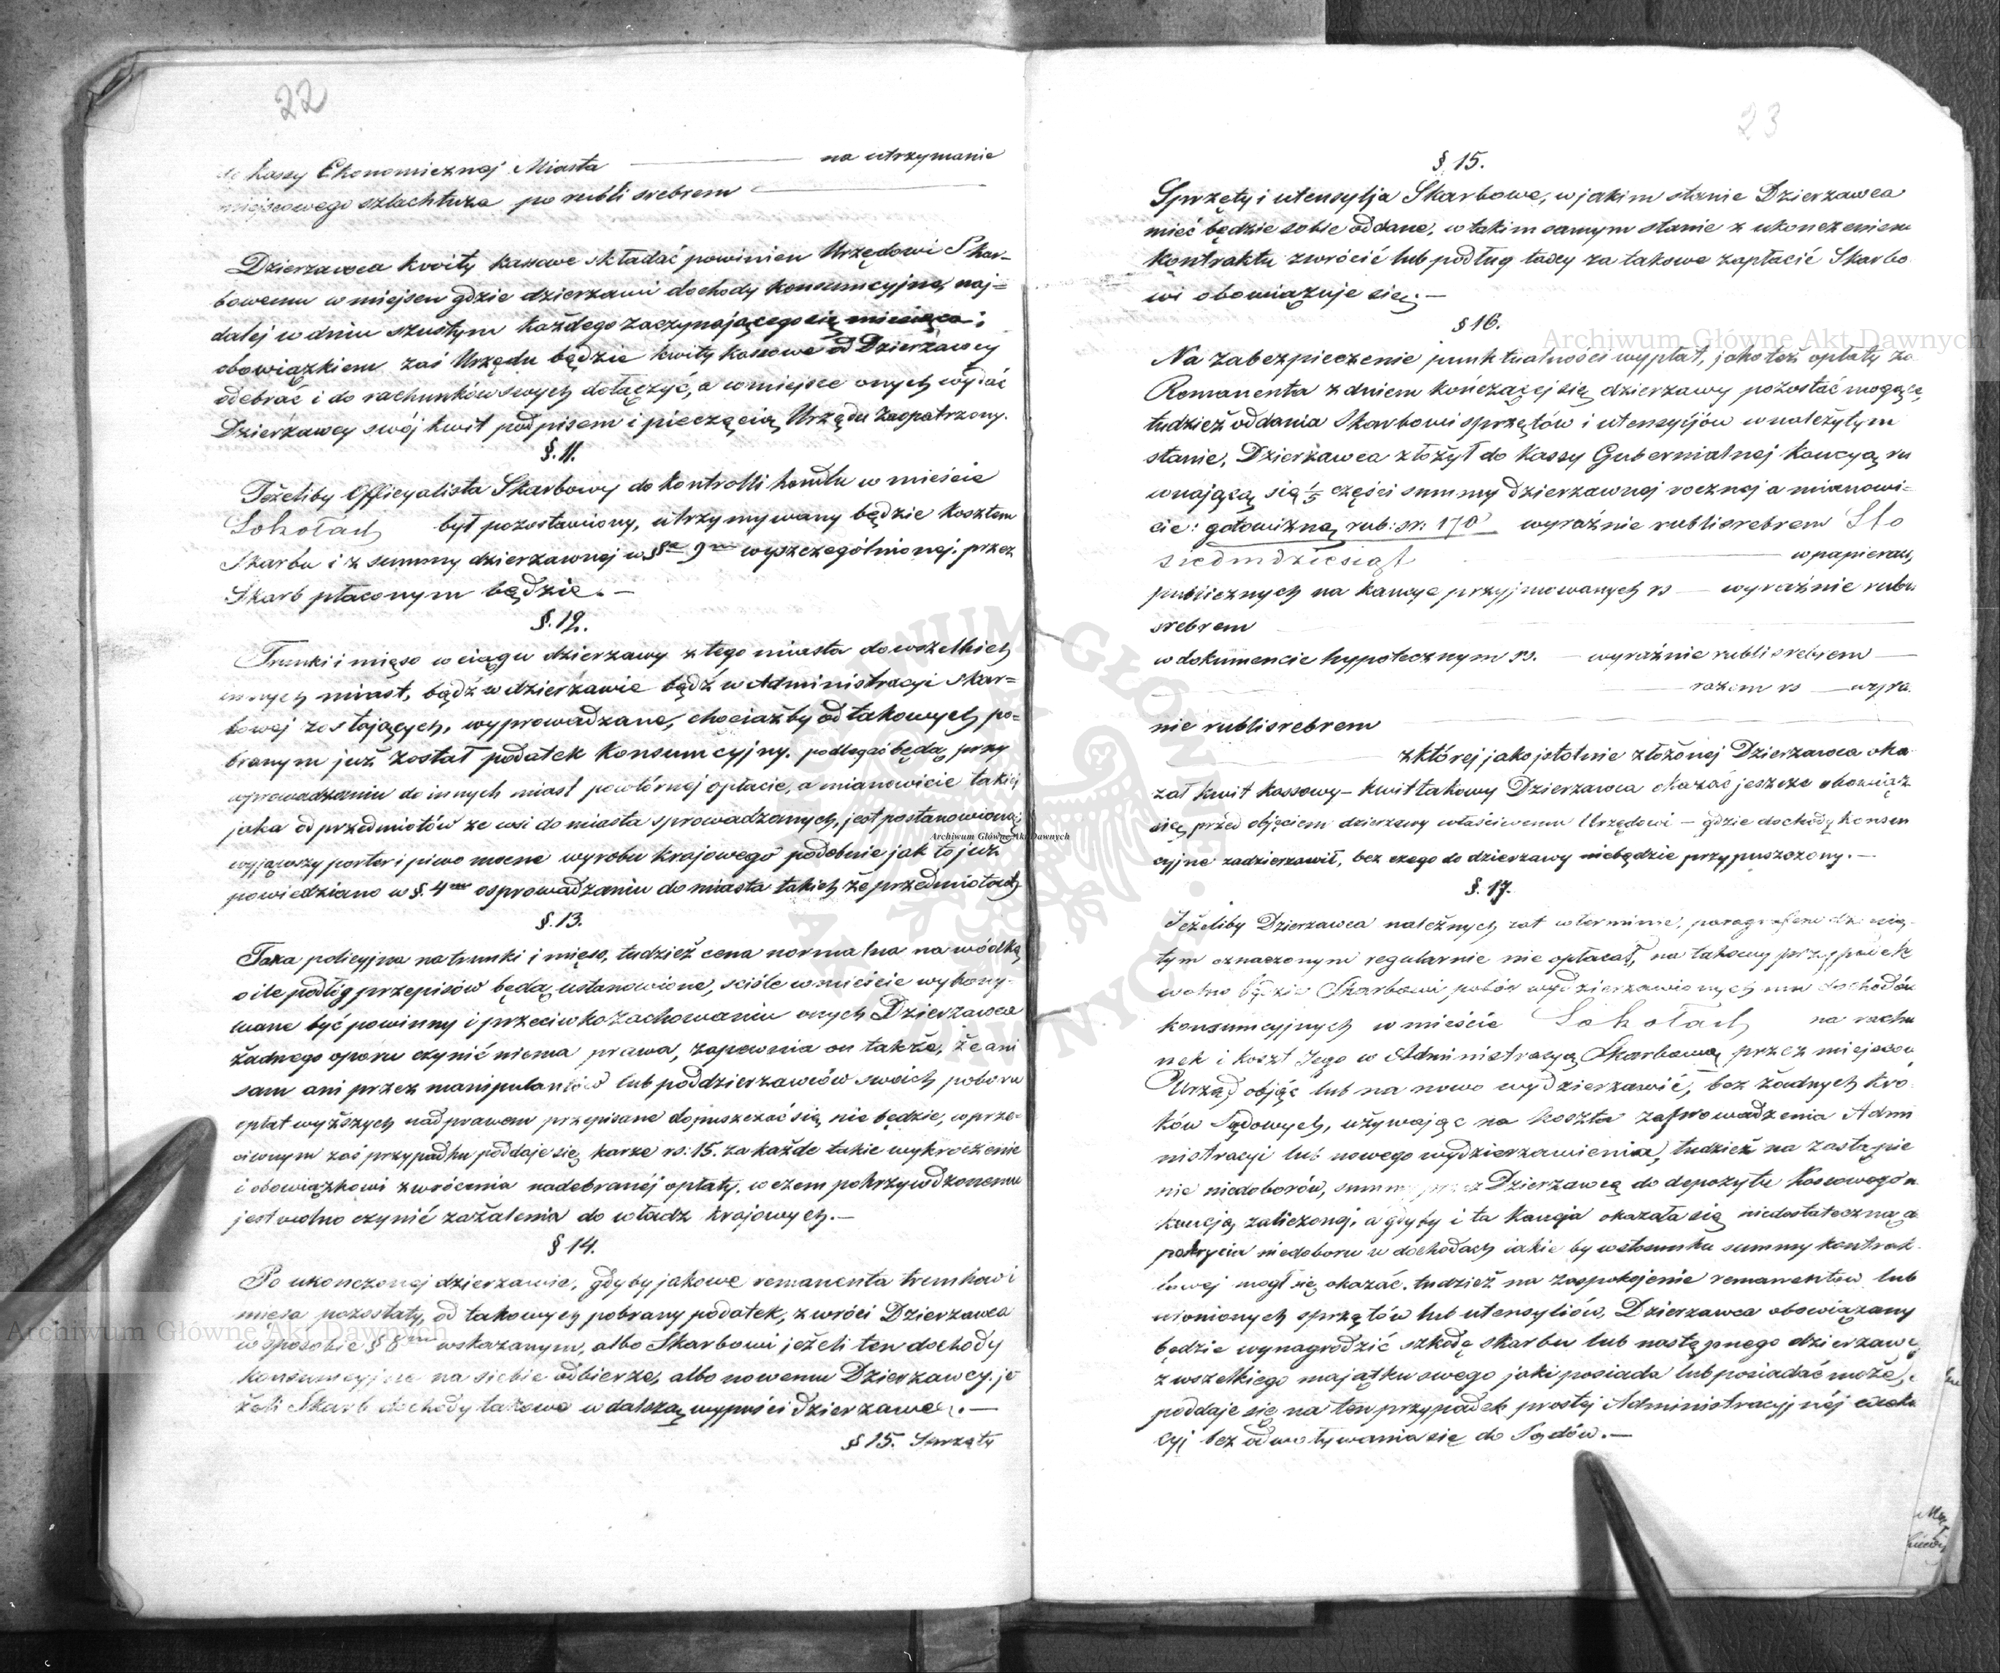 22
do Kassy Ekonomicznej Miasta na utrzymanie
miejscowego szlachtuza po rubli srebrem
Dzierzawca kwity kassowe składać powinien Urzędowi Skar-
bowemu w miejscu gdzie dzierzawi dochody konsumcyjne, naj=
dalej w dniu szustym każdego zaczynającego się miesiąca;
obowiązkiem zaś Urzędu będzie kwity kassowe od Dzierzawcy
odebrać i do rachunków swych dołączyć, a w miejsce onych wydać
Dzierżawcy swój kwit podpisem i pieczęcią Urzędu zaopatrzony.
§. 11.
Jeżeliby Officyalista Skarbowy do kontrolli handlu w mieście
Sokołach był pozostawiony, utrzymywany będzie kosztem
Skarbu i z summy dzierzawnej w § 9 wyszczególnionej, przez
Skarb płaconym będzie. —
§. 12.
Trunki i mięso w ciągu dzierzawy z tego miasta do wszelkich
innych miast, bądź w dzierżawie bądź w Administracyi Skar=
bowej zostających, wyprowadzane, chociażby od takowych po=
branym już został podatek konsumcyjny, podlegać będą, przy
wprowadzaniu do innych miast powtórnej opłacie, a mianowicie takiej
jaka od przedmiotów ze wsi do miasta sprowadzanych, jest postanowioną,
wyjąwszy porter i piwo mocne wyrobu krajowego podobnie jak to już
powiedziano w §. 4 o sprowadzaniu do miasta takich że przedmiotach
§. 13.
Taxa policyjna na trunki i mięso, tudzież cena normalna na wódkę,
o ile podług przepisów będą ustanowione, sciśle w mieście wykony-
wane być powinny i przeciwko zachowaniu onych Dzierzawca
żadnego oporu czynić niema prawa, zapewnia on także, że ani
sam ani przez manipulantów lub poddzierzawców swoich poboru
opłat wyższych nad prawem przepisane dopuszczać się nie będzie, w prze-
ciwnym zaś przypadku poddaje się karze rs: 15. za każde takie wykroczenie
i obowiązkowi zwrócenia nadebranéj opłaty, w czem pokrzywdzonemu
jest wolno czynić zażalenia do władz krajowych. —
§ 14.
Po ukończonej dzierzawie, gdyby jakowe remanenta trunków i
mięsa pozostały, od takowych pobrany podatek, zwróci Dzierzawca
w sposobie § 8 wskazanym, albo Skarbowi jeżeli ten dochody
konsumcyjne na siebie odbierze, albo nowemu Dzierzawcy, je
żeli Skarb dochody takowe w dalszą wypuści dzierzawę. —
§ 15. Sprzęty
23
§. 15.
Sprzęty i utensylja Skarbowe, w jakim stanie Dzierzawca
mieć będzie sobie oddane, w takim samym stanie z ukończeniem
kontraktu zwrócić lub podług taxy za takowe zapłacić Skarbo
wi obowiązuje się. —
§ 16.
Na zabezpieczenie punktualności wypłat, jako też opłaty za
Remanenta z dniem kończącej się dzierżawy pozostać mogące,
tudzież oddania Skarbowi sprzętów i utensyljów w należytym
stanie, Dzierżawca złożył do Kassy Gubernialnej kaucyą ró
wnającą się 1/5 części summy dzierzawnej rocznej a mianowi-
cie: gotowizną rub: sr: 170 wyraźnie rubli srebrem Sto
siedmdziesiąt w papierach
publicznych na kaucye przyjmowanych rs — wyraźnie rubli
srebrem
w dokumencie hypotecznym rs. — wyraźnie rubli srebrem —
razem rs — wyra.
nie rubli srebrem
z której jako istotnie złożonej Dzierzawca oka
zał kwit kassowy — kwit takowy Dzierzawca okazać jeszcze obowiąz
się, przed objęciem dzierzawy właściwemu Urzędowi — gdzie dochody konsum
cyjne zadzierzawił, bez czego do dzierzawy niebędzie przypuszczony. —
§. 17.
Jeżeliby Dzierzawca należnych rat w terminie, paragrafem dziewią-
tym oznaczonym regularnie nie opłacał, na takowy przypadek
wolno będzie Skarbowi pobór wydzierzawionych mu dochodów
konsumcyjnych w mieście Sokołach na rachu
nek i koszt Jego w Administracyą Skarbową przez miejscowy
Urząd objąć lub na nowo wydzierzawić, bez żadnych kro
ków Sądowych, używając na koszta zaprowadzenia Admi
nistracyi lub nowego wydzierzawienia, tudzież na zastąpie
nie niedoborów, summy przez Dzierzawcę do depozytu Kassowego w
kaucją zaliczonej, a gdyby i ta Kaucja okazała się niedostateczną do
pokrycia niedoboru w dochodach jakie by w stosunku summy kontrak-
towej mogł się okazać, tudzież na zaspokojenie remanentów lub
wionionych sprzętów lub utensyliów, Dzierzawca obowiązany
będzie wynagrodzić szkodę skarbu lub następnego dzierzawcy
z wszelkiego majątku swego jaki posiada lub posiadać może, i
poddaje się na ten przypadek prostej Administracyjnéj exeku
cyj bez odwoływania się do Sądów. —
Archiwum Główne Akt Dawnych
Archiwum Główne Akt Dawnych
Archiwum Główne Akt Dawnych